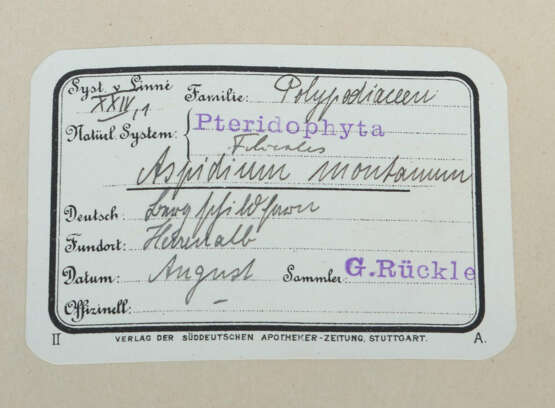 Syst. v. Linné XXIV,1 Familie: Polypodiaceen
Natürl. System: Pteridophyta
Filicales
Aspidium montanum
Deutsch: Bergschildfarn
Fundort: Herrenalb
Datum: August Sammler: G. Rückle
Offizinell: –
II VERLAG DER SÜDDEUTSCHEN APOTHEKER-ZEITUNG, STUTTGART. A.